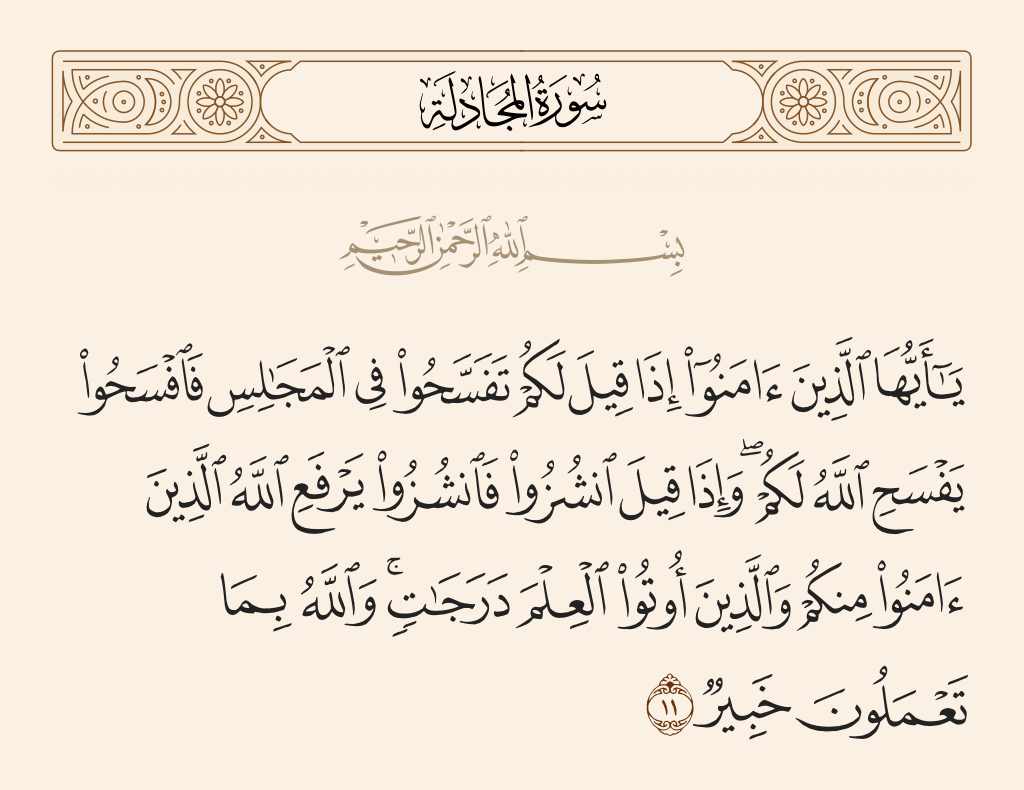 سُورَةُ المُجَادلَةِ
بِسْمِ ٱللَّهِ ٱلرَّحْمَٰنِ ٱلرَّحِيمِ
يَٰٓأَيُّهَا ٱلَّذِينَ ءَامَنُوٓا۟ إِذَا قِيلَ لَكُمْ تَفَسَّحُوا۟ فِى ٱلْمَجَٰلِسِ فَٱفْسَحُوا۟
يَفْسَحِ ٱللَّهُ لَكُمْ ۖ وَإِذَا قِيلَ ٱنشُزُوا۟ فَٱنشُزُوا۟ يَرْفَعِ ٱللَّهُ ٱلَّذِينَ
ءَامَنُوا۟ مِنكُمْ وَٱلَّذِينَ أُوتُوا۟ ٱلْعِلْمَ دَرَجَٰتٍ ۚ وَٱللَّهُ بِمَا
تَعْمَلُونَ خَبِيرٌ ١١